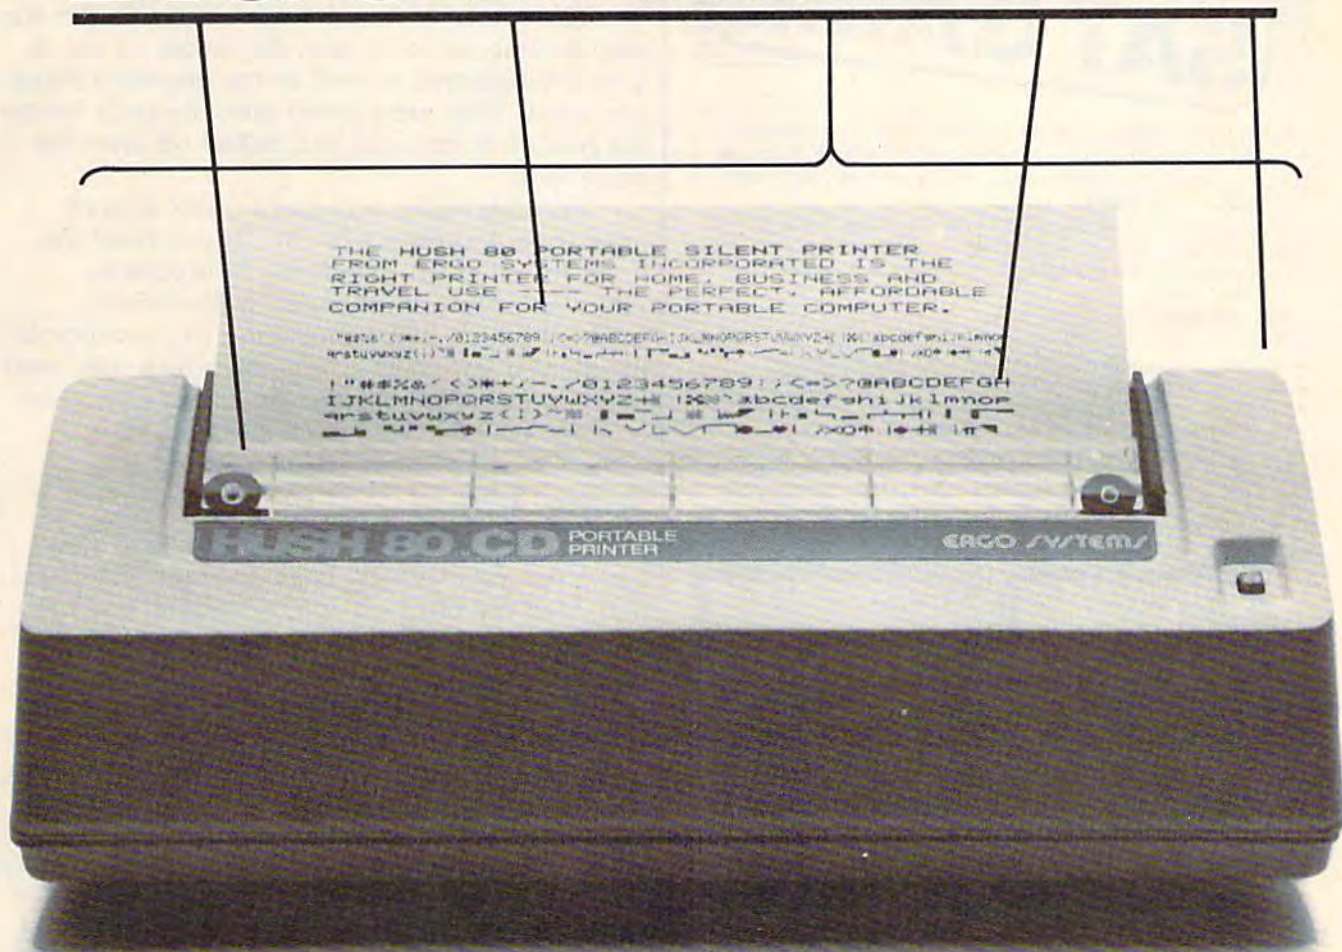 THE HUSH 80 PORTABLE SILENT PRINTER
FROM ERGO SYSTEMS INCORPORATED IS THE
RIGHT PRINTER FOR HOME, BUSINESS AND
TRAVEL USE ---- THE PERFECT, AFFORDABLE
COMPANION FOR YOUR PORTABLE COMPUTER.
/0123456789:;<=>?@ABCDEFGHIJKLMNOPQRSTUVWXYZ
qrstuvwxyz
!"##%&'()*+,-./0123456789:;<=>?@ABCDEFGH
IJKLMNOPQRSTUVWXYZ abcdefghijklmnop
qrstuvwxyz
HUSH 80 CD PORTABLE PRINTER
ERGO SYSTEMS